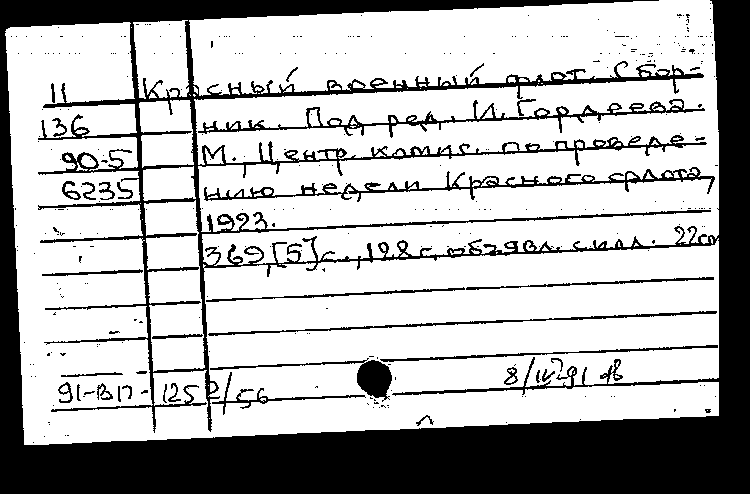 11 Красный военный флот. Сбор-
136 ник. Под ред. И. Гордеева.
90-5 М., Центр. комис. по проведе-
6235 нию недели Красного флота,
1923.
369, [5] с., 128 с. объявл. с илл. 22см
91-ВП-1252/56 8/IV-91